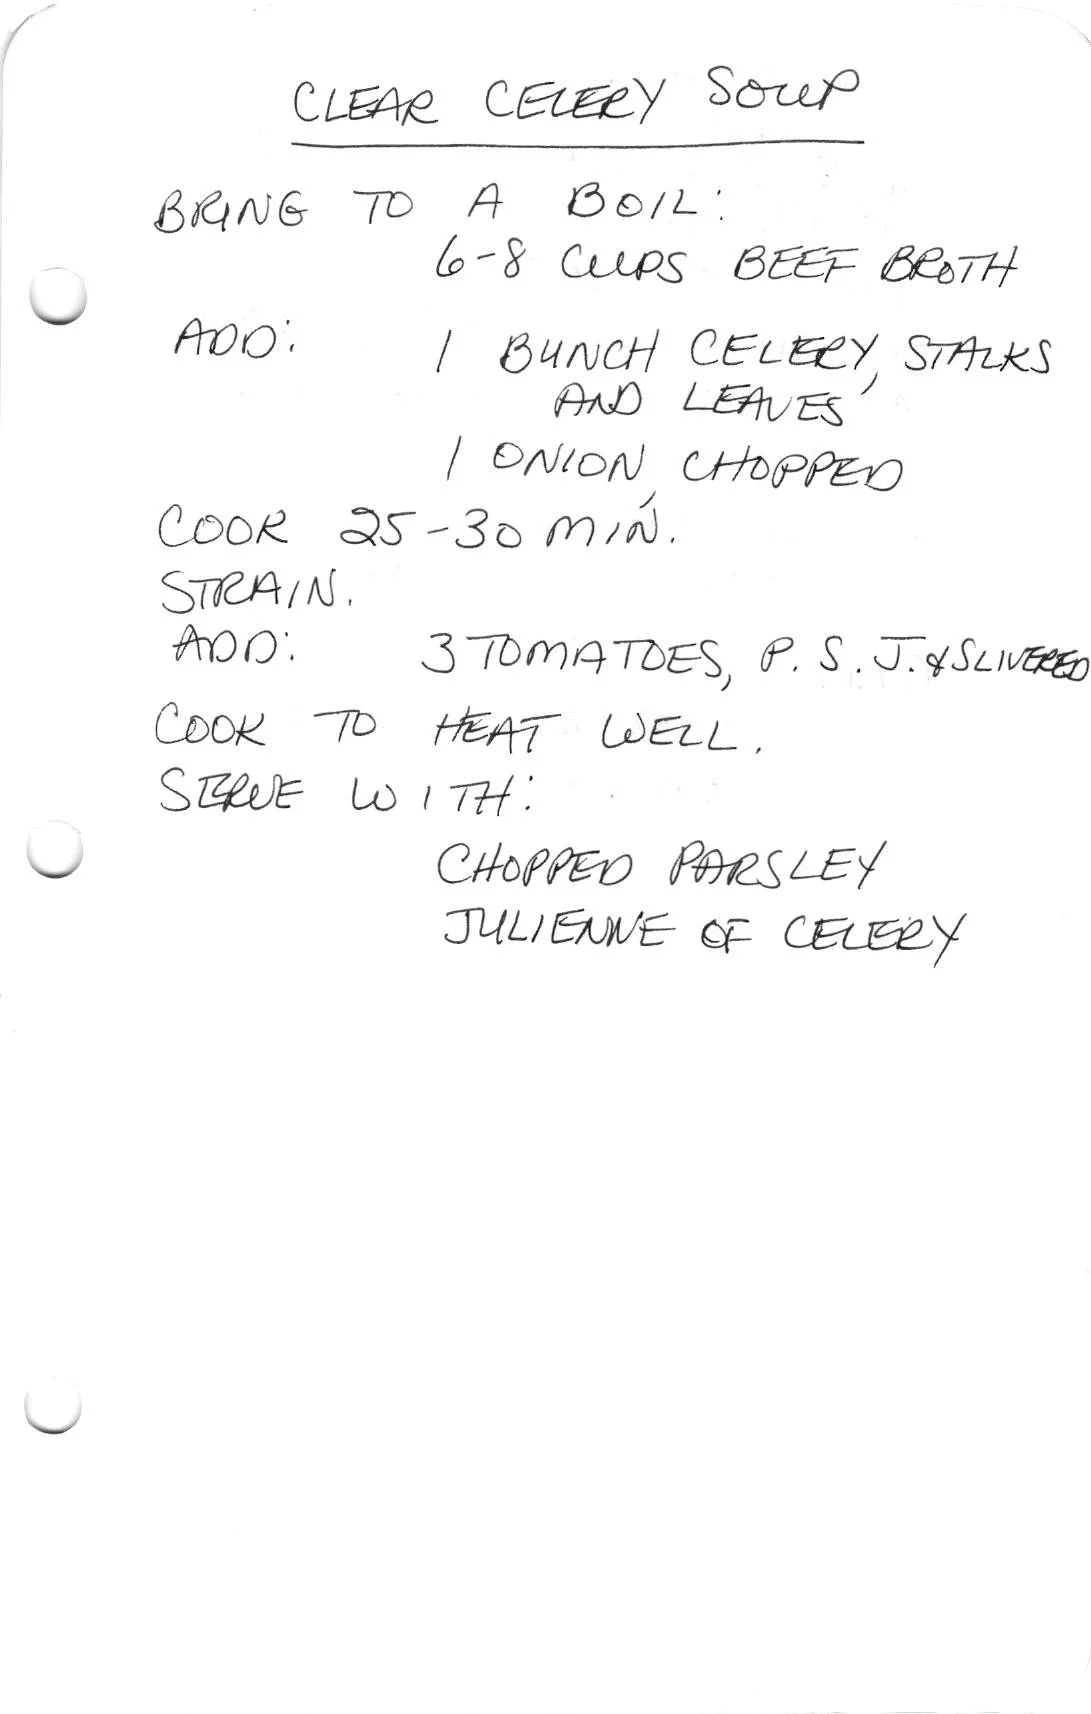 CLEAR CELERY SOUP
BRING TO A BOIL:
6-8 CUPS BEEF BROTH
ADD: 1 BUNCH CELERY, STALKS
AND LEAVES
1 ONION, CHOPPED
COOK 25-30 MIN.
STRAIN.
ADD: 3 TOMATOES, P. S. J. & SLIVERED
COOK TO HEAT WELL.
SERVE WITH:
CHOPPED PARSLEY
JULIENNE OF CELERY